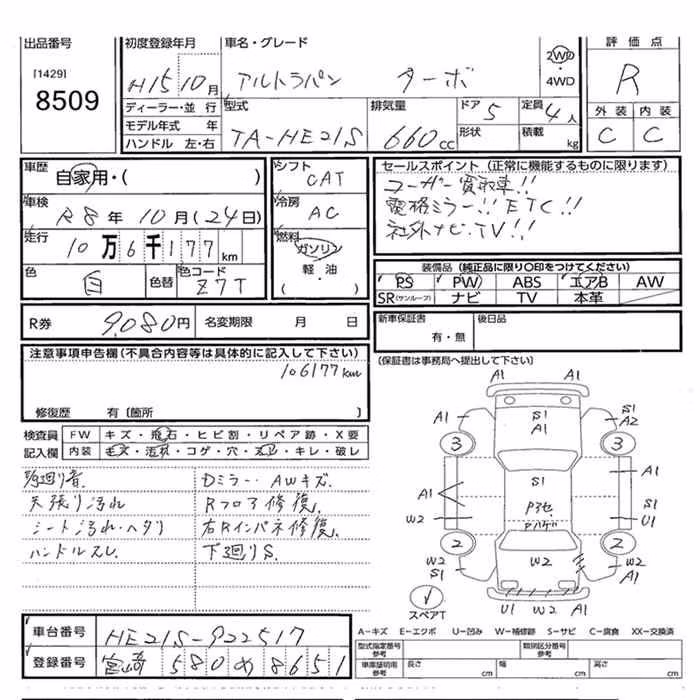 出品番号
[1429]
8509
初度登録年月
H15年10月
ディーラー・並 行
モデル年式 年
ハンドル 左・右
車名・グレード
アルトラパン ターボ
2WD
・4WD
型式
TA-HE21S
排気量
660cc
ドア 5
形状
定員 4人
積載 kg
評価点
R
外装 内装
C C
車歴
自家用・( )
車検
R8年10月(24日)
走行
10万6千177km
色
白
色替
色コード
Z7T
シフト
CAT
冷房
AC
燃料
ガソリン
軽・油
( )
セールスポイント (正常に機能するものに限ります)
ユーザー買取車!!
電格ミラー!! ETC!!
社外ナビ・TV!!
装備品 (純正品に限り○印をつけてください)
PS PW ABS エアB AW
SR(サンルーフ) ナビ TV 本革
R券 9,080円 名変期限 月 日
新車保証書
有・無
後日品
(保証書は事務局へ提出して下さい)
注意事項申告欄(不具合内容等は具体的に記入して下さい)
106177km
修復歴 有〔箇所 〕
検査員 FW キズ・飛石・ヒビ割・リペア跡・X要
記入欄 内装 キズ・汚れ・コゲ・穴・スレ・キレ・破レ
天張り汚れ
シート汚れ・ヘタリ
ハンドルスレ.
Dミラー・AWキズ.
Rフロア修復.
右Rインパネ修復.
下廻りS.
A1 A1
A1 S1 A1 S1 A2
3 3
A1 S1 A1
W2 Pアセ S1 U1
Pハゲ
2 2
W2 S1 W2 W2 A1
U1 W2 A1
スペアT
A-キズ E-エクボ U-凹み W-補修跡 S-サビ C-腐食 XX-交換済
車台番号 HE21S-922517
登録番号 宮崎 580 め 8651
型式指定番号
参考
類別区分番号
参考
車庫証明用
参考
長さ cm 幅 cm 高さ cm